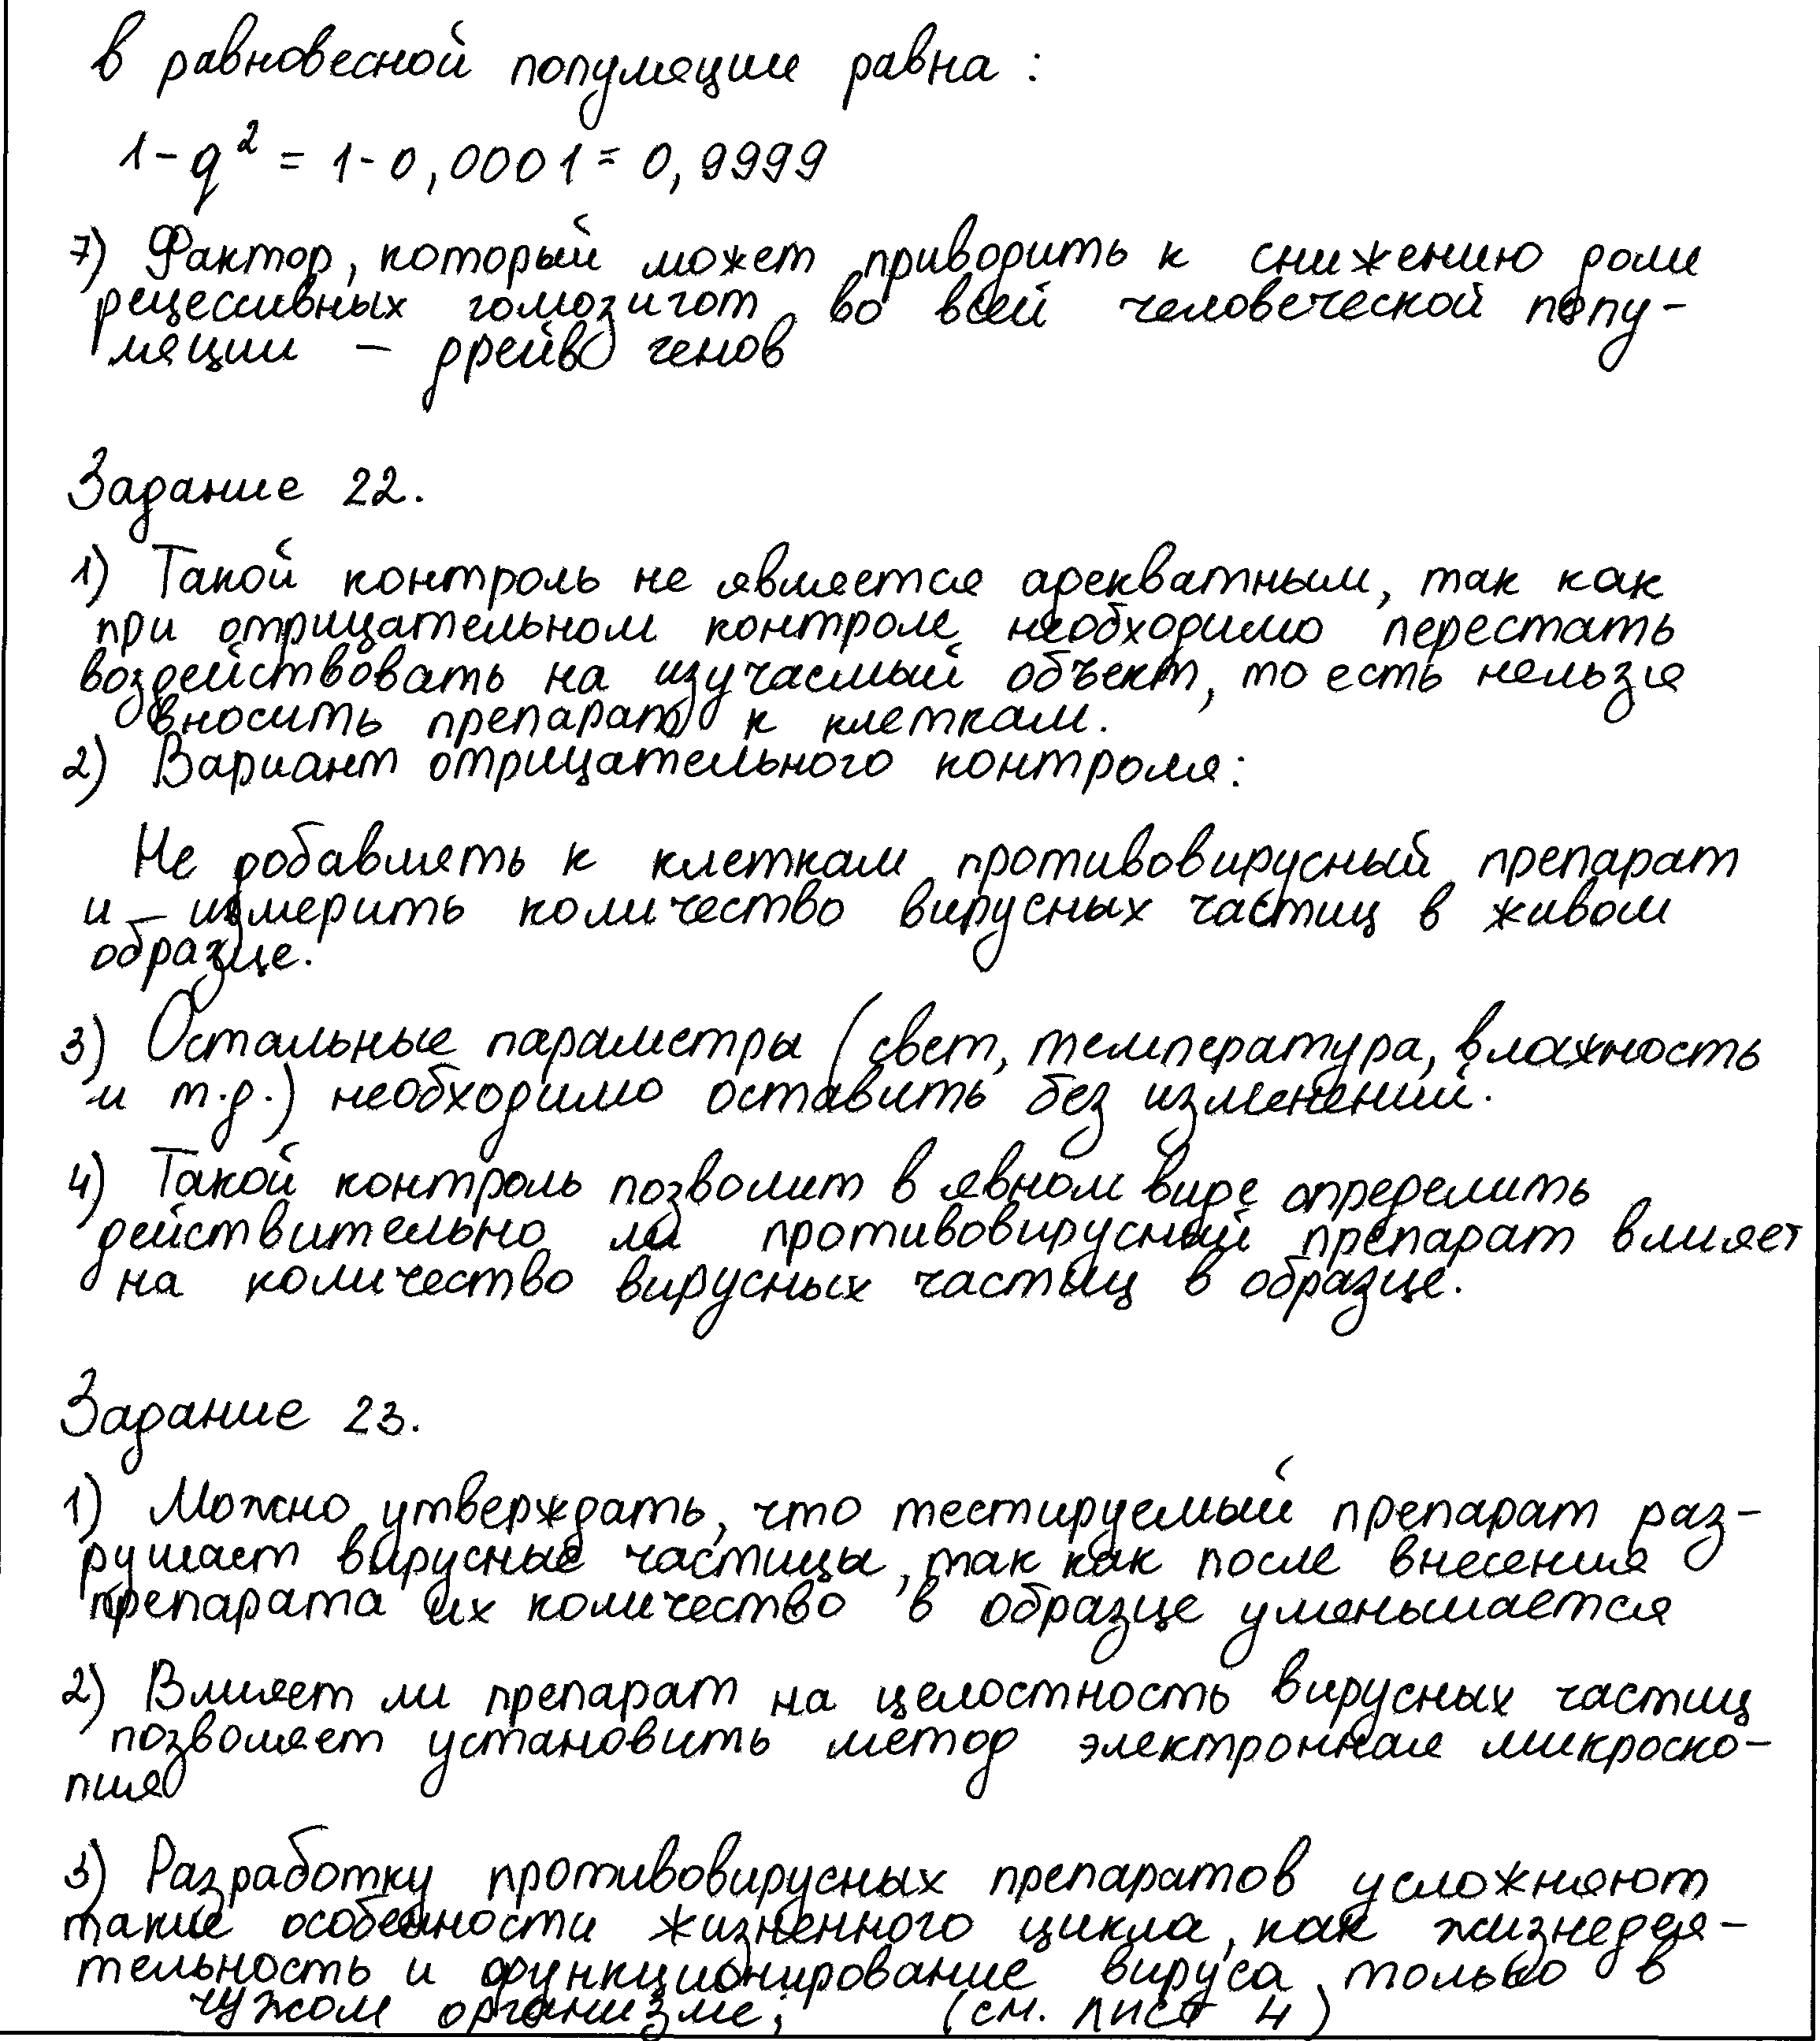 в равновесной популяции равна:
1-q² = 1-0,0001 = 0,9999
7) Фактор, который может приводить к снижению доли
рецессивных гомозигот во всей человеческой попу-
ляции – дрейф генов
Задание 22.
1) Такой контроль не является адекватным, так как
при отрицательном контроле необходимо перестать
воздействовать на изучаемый объект, то есть нельзя
вносить препарат к клеткам.
2) Вариант отрицательного контроля:
Не добавлять к клеткам противовирусный препарат
и измерить количество вирусных частиц в живом
образце.
3) Остальные параметры (свет, температура, влажность
и т.д.) необходимо оставить без изменений.
4) Такой контроль позволит в явном виде определить
действительно ли противовирусный препарат влияет
на количество вирусных частиц в образце.
Задание 23.
1) Можно утверждать, что тестируемый препарат раз-
рушает вирусные частицы, так как после внесения
препарата их количество в образце уменьшается
2) Влияет ли препарат на целостность вирусных частиц
позволяет установить метод электронная микроско-
пия
3) Разработку противовирусных препаратов усложняют
такие особенности жизненного цикла, как жизнедея-
тельность и функционирование вируса только в
чужом организме; (см. лист 4)